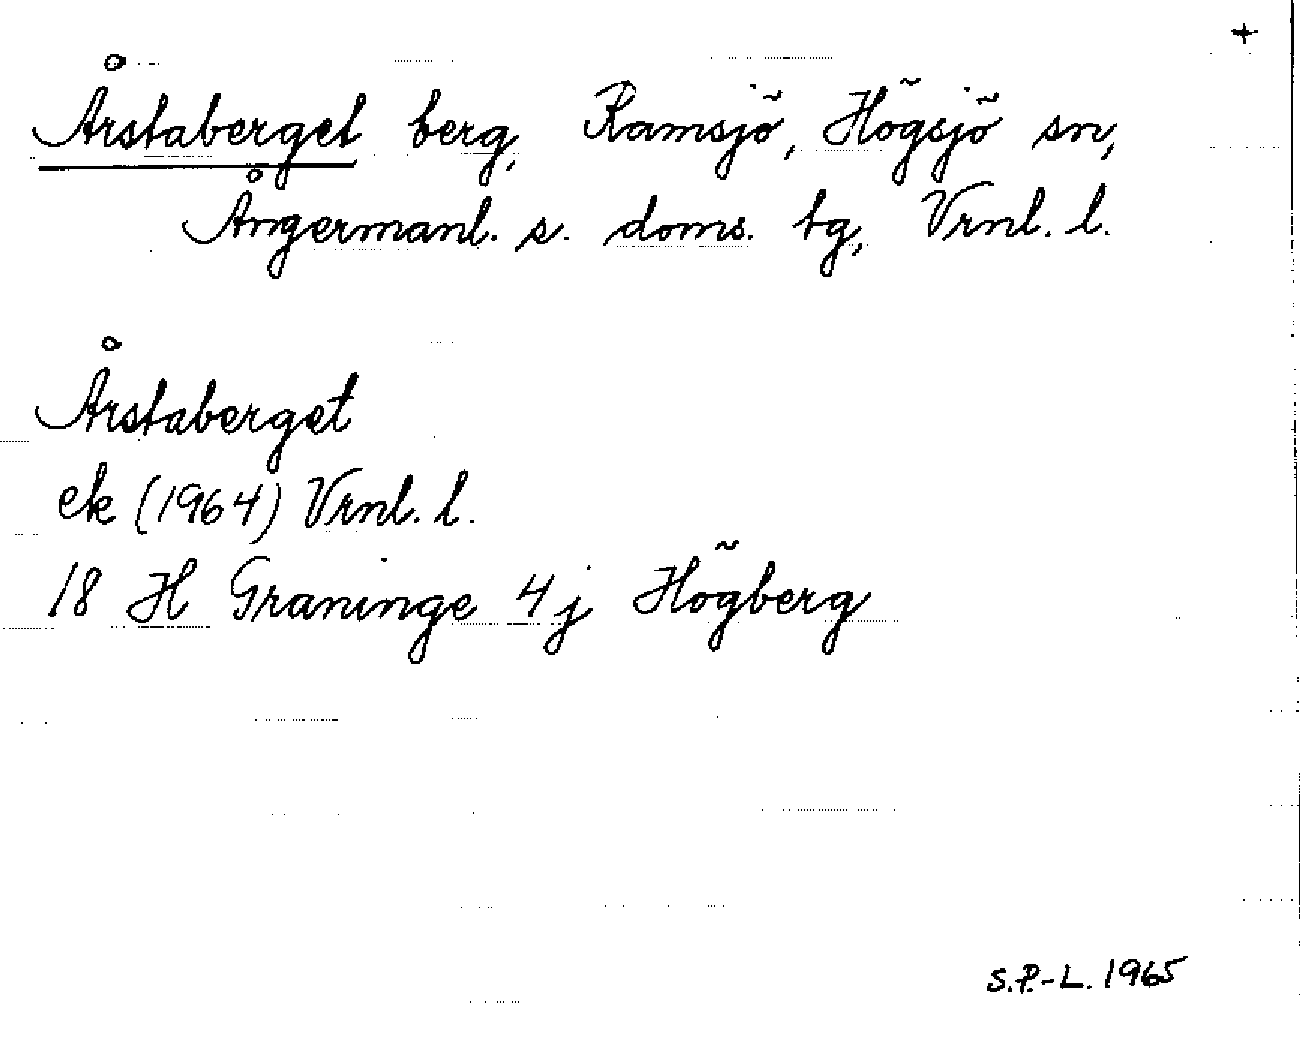 +
Årstaberget berg, Ramsjö, Högsjö sn,
Ångermanl. s. doms. tg, Vrnl. l.
Årstaberget
ek (1964) Vrnl. l.
18 H Graninge 4j Högberg
S.P.-L. 1965